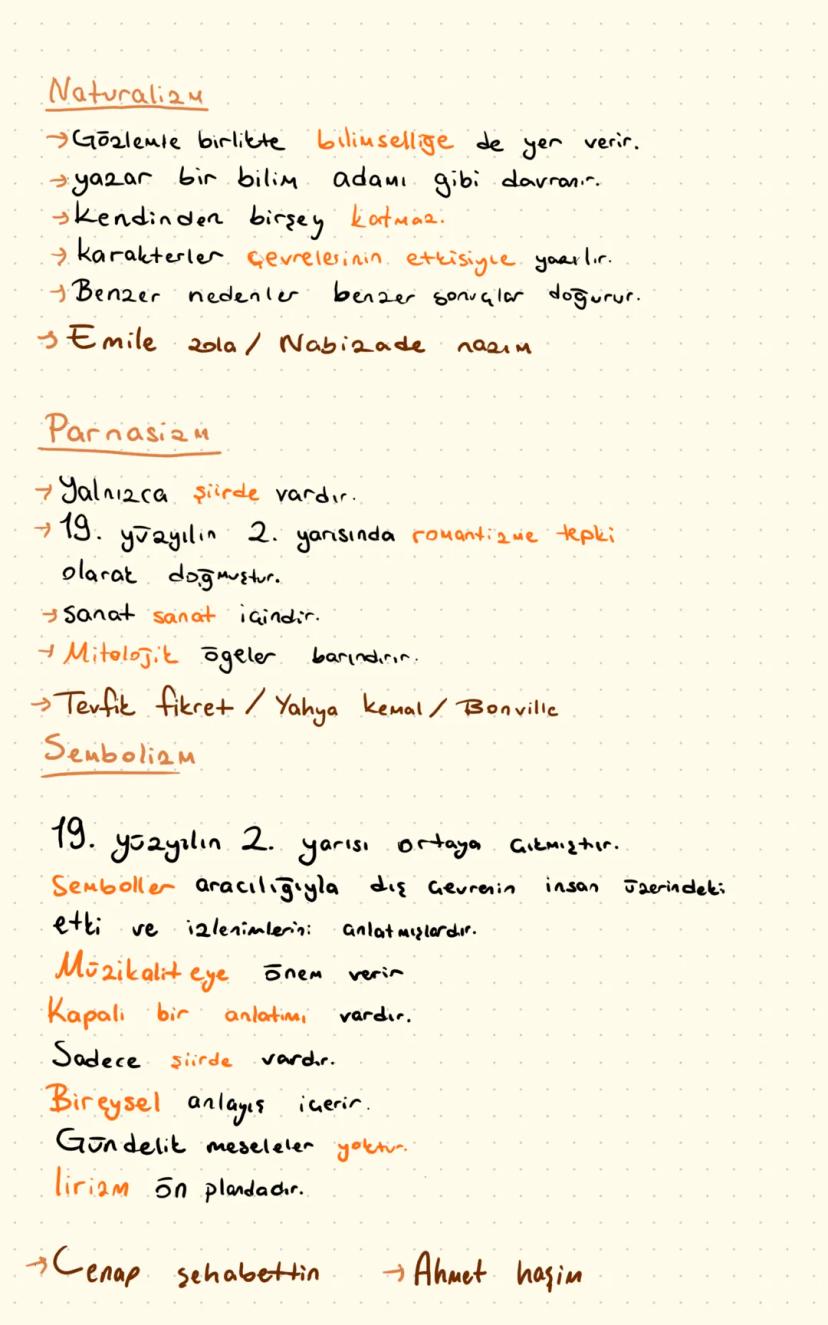 Naturalizm
→Gözlemle birlikte bilimselliğe de yer verir.
→yazar bir bilim adamı gibi davranır.
→kendinden birşey katmaz.
→karakterler çevrelerinin etkisiyle yazılır.
→Benzer nedenler benzer sonuçlar doğurur.
→Emile zola / Nabizade nazım
Parnasizm
→Yalnızca şiirde vardır.
→19. yüzyılın 2. yarısında romantizme tepki
olarak doğmuştur.
→sanat sanat içindir.
→Mitolojik ögeler barındırır.
→Tevfik fikret / Yahya kemal / Bonville
Sembolizm
19. yüzyılın 2. yarısı ortaya çıkmıştır.
Semboller aracılığıyla dış çevrenin insan üzerindeki
etki ve izlenimlerini anlatmışlardır.
Müzikaliteye önem verir
Kapalı bir anlatımı vardır.
Sadece şiirde vardır.
Bireysel anlayış içerir.
Gündelik meseleler yoktur.
lirizm ön plandadır.
→Cenap şehabettin →Ahmet haşim